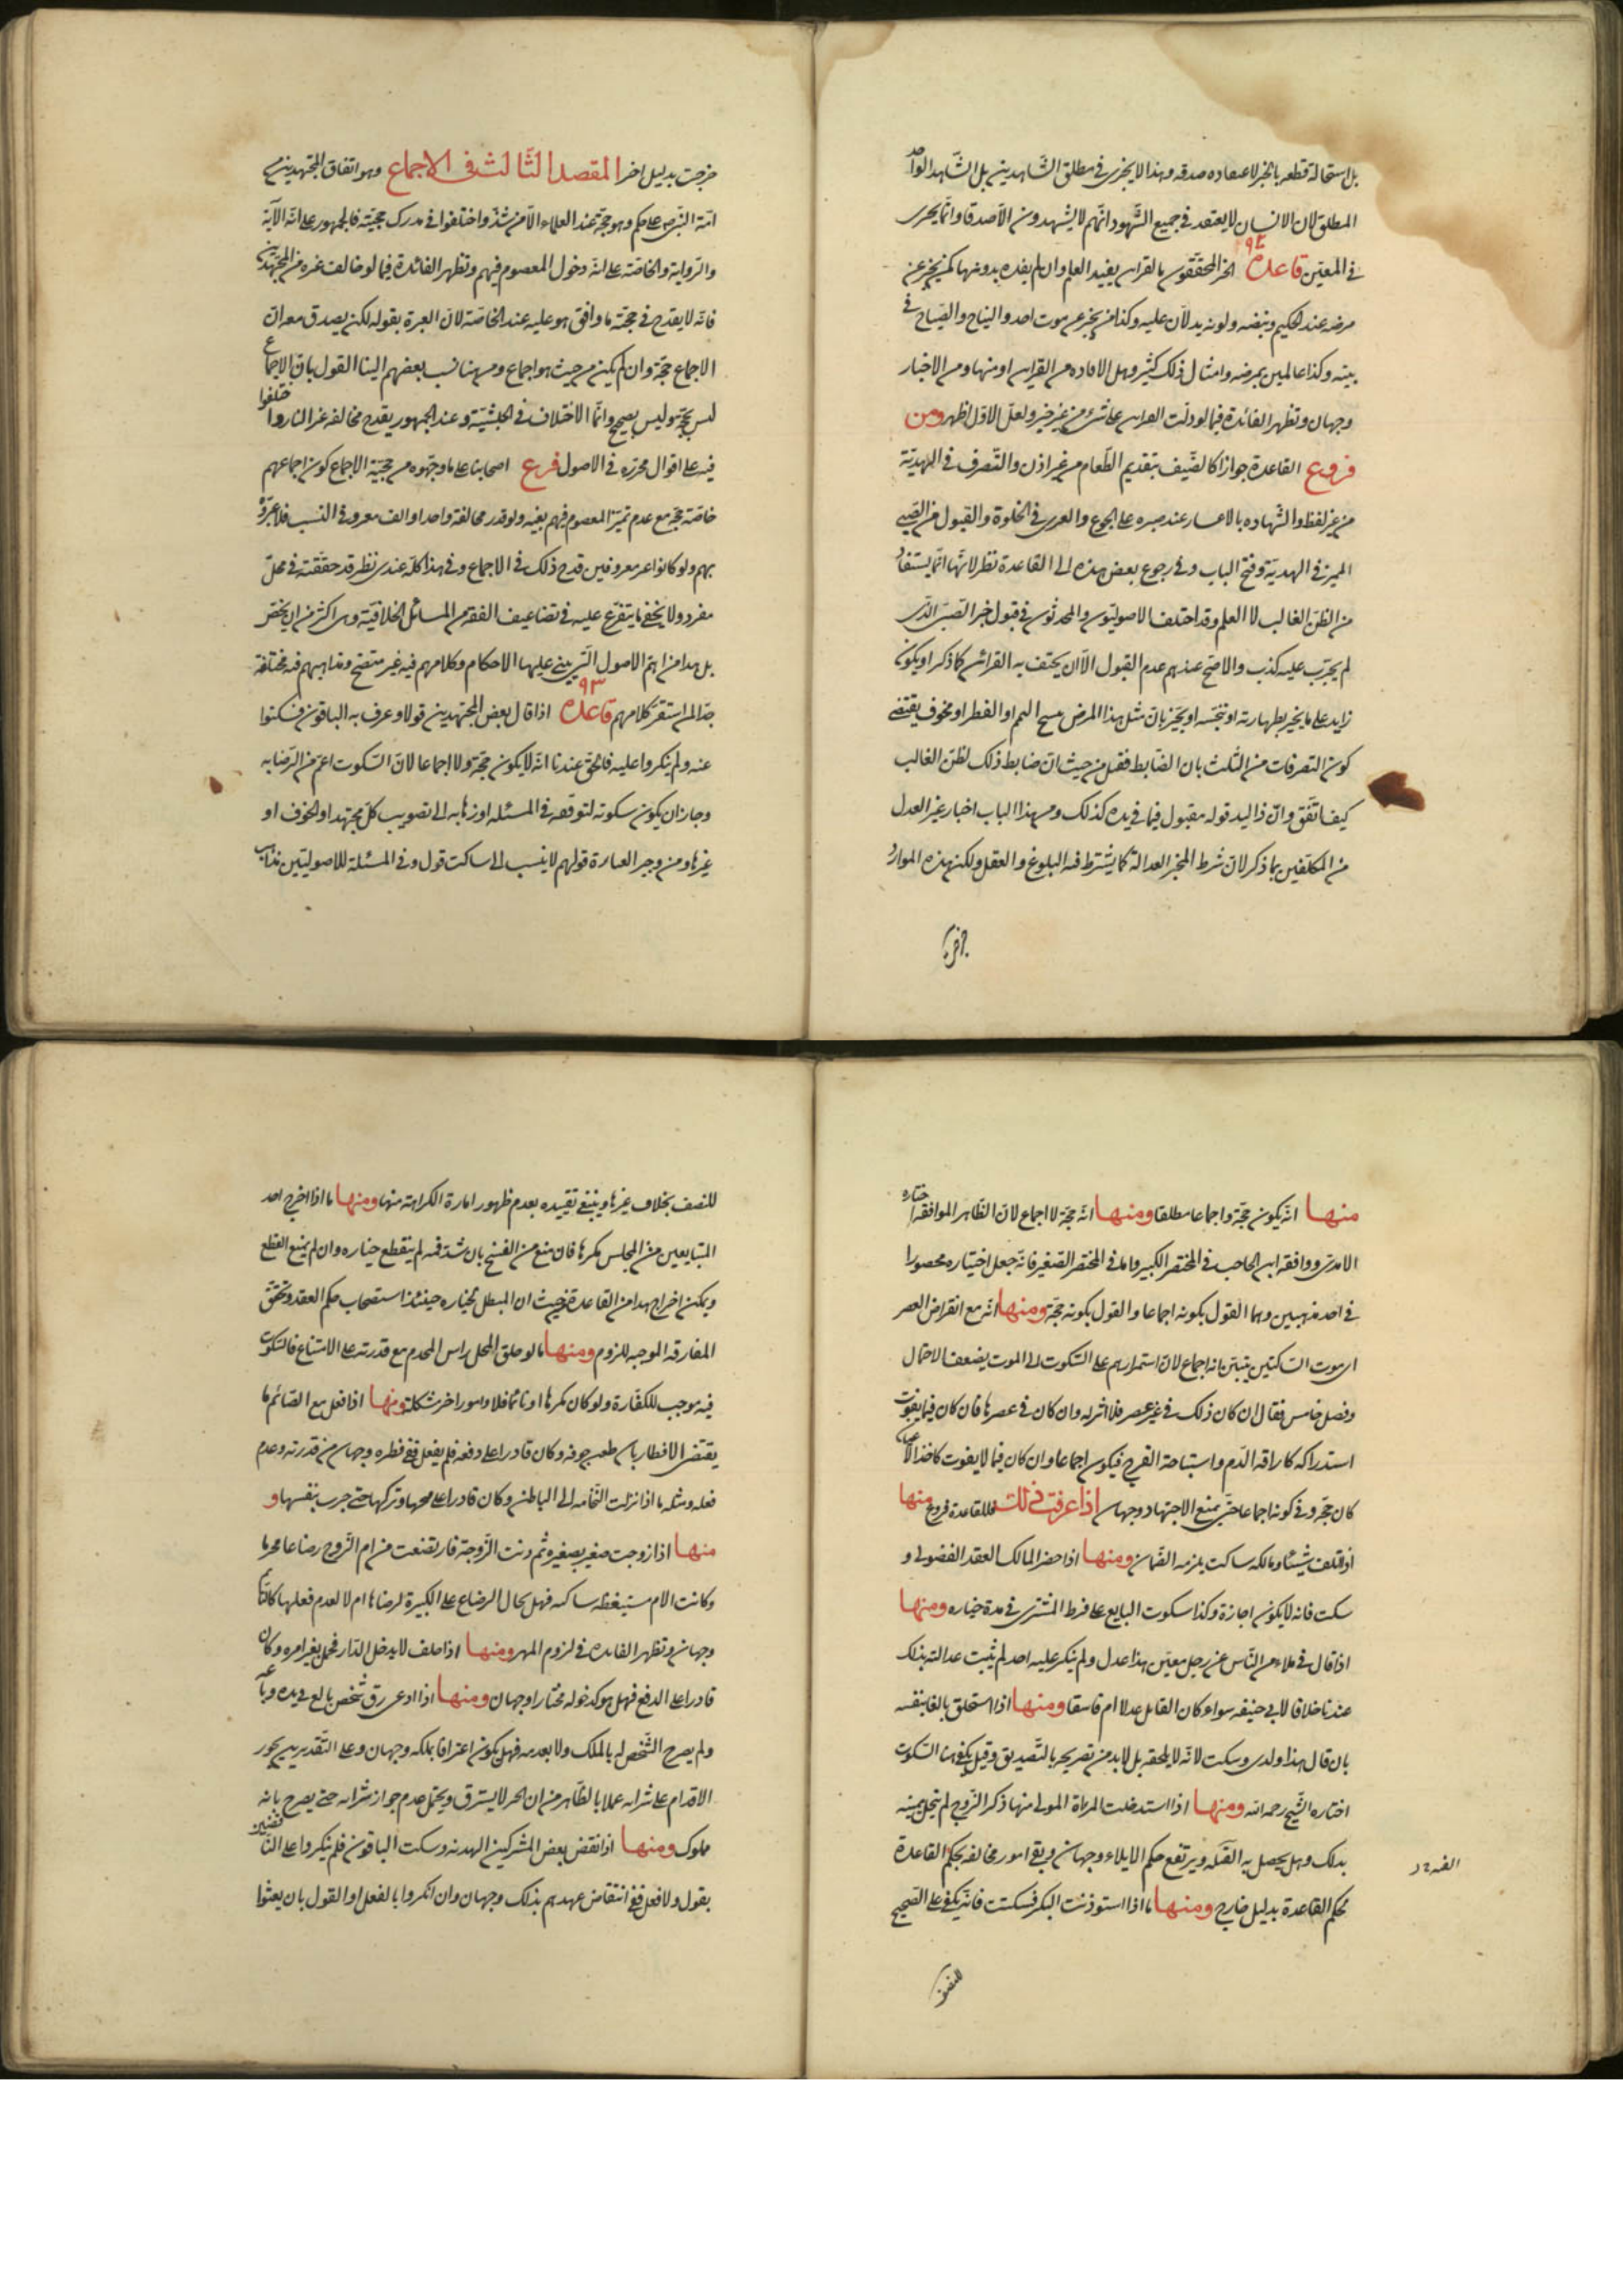 بل استحالة قطعه بالخبر لاعتقاده صدقه وهذا لا يجزى فى مطلق الشّاهدين بل الشّاهد الواحد
المطلق لان الانسان لا يعتقد فى جميع الشّهود انّهم لا يشهدون الّا صدقا وانّما يجرى
فى المعيّن قاعدة ٩٢ الخبر المحفوف بالقراين يفيد العلم وان لم يفده بدونها كمن يخبر عن
مرضه عند الحكيم ونبضه ولونه يدلّان عليه وكذا من يخبر عن موت احد والنياح والصّياح فى
بيته وكذا عالمين بمرضه وامثال ذلك كثير وهل الافاده من القراين او منها ومن الاخبار
وجهان وتظهر الفائدة فيما لو دلّت القراين على شئ من غير خبر ولعلّ الاوّل اظهر ومن
فروع القاعدة جواز اكل الضّيف بتقديم الطّعام من غير اذن والتّصرف فى الهديّة
من غير لفظ والشّهاده بالاعسار عند صبره على الجوع والعرى فى الخلوة والقبول من الصّبى
المميز فى الهديّة وفتح الباب وفى رجوع بعض هذه الى القاعدة نظر لانّها انّما يستفاد
من الظن الغالب لا العلم وقد اختلف الاصوليّون والمحدثون فى قبول خبر الصّبىّ الّذى
لم يجرّب عليه كذب والاصح عندهم عدم القبول الّا ان يحتف به القرائن كما ذكر او يكون
زايد على ما يخبر بطهارته او تنجّسه او يخبر بانّ مثل هذا المرض مبيح التيمم او الفطر او مخوف يقتضى
كون التصرفات من الثلث بان الضّابط فقيل من حيث انّ ضابط ذلك لظنّ الغالب
كيف اتّفق وانّ ذا اليد قوله مقبول فيما فى يده كذلك ومن هذا الباب اخبار غير العدل
من المكلّفين بما ذكر لانّ شرط المخبر العدالة كما يشترط فيه البلوغ والعقل ولكن هذه الموارد
خرجت
خرجت بدليل اخر المقصد الثّالث فى الاجماع وهو اتفاق المجتهدين من
امّة النّبى ص على حكم وهو حجّة عند العلماء الّا من شذّ واختلفوا فى مدرك حجيّته فالجمهور على انّه الآية
والرّواية والخاصّة على انّه دخول المعصوم فيهم وتظهر الفائدة فيما لو خالف غيره من المجتهدين
فانّه لا يقدح فى حجيّة ما وافق هو عليه عند الخاصّة لانّ العبرة بقوله لكن يصدق معه ان
الاجماع حجّة وان لم يكن من حيث هو اجماع ومن هنا نسب بعضهم الينا القول بانّ الاجماع
ليس بحجّة وليس بصحيح وانّما الاختلاف فى الحيثيّة وعند الجمهور يقدح مخالفة غير النادر واختلفوا
فيه على اقوال محرّره فى الاصول فرع اصحابنا على ما وجّهوه من حجيّة الاجماع كون اجماعهم
خاصّة حجّة مع عدم تميّز المعصوم فيهم بعينه ولو قدر مخالفة واحد او الف معروفى النسب فلا عبرة
بهم ولو كانوا غير معروفين قدح ذلك فى الاجماع وفى هذا كلّه عندى نظر قد حققته فى محلّ
مفرد ولا يخفى ما يتفرّع عليه فى تضاعيف الفقه من المسائل الخلافيّة وهى اكثر من ان يحصر
بل هذا من اهمّ الاصول الّتى يبنى عليها الاحكام وكلامهم فيه غير متضح ومذاهبهم فيه مختلفة
جدّا لمن استقرّ كلامهم قاعدة ٩٣ اذا قال بعض المجتهدين قولا وعرف به الباقون فسكتوا
عنه ولم ينكروا عليه فالحقّ عندنا انّه لا يكون حجّة ولا اجماعا لانّ السّكوت اعمّ من الرّضا به
وجاز ان يكون سكوته لتوقّفه فى المسئله او ذهابه الى تصويب كلّ مجتهد او لخوف او
غيرها ومن وجيز العبارة قولهم لا ينسب الى ساكت قول وفى المسئلة للاصوليّين مذاهب
منها انّه يكون حجّة واجماعا مطلقا ومنها انّه حجّة لا اجماع لانّ الظّاهر الموافقة اختاره
الامدىّ ووافقه ابن الحاجب فى المختصر الكبير واما فى المختصر الصّغير فانّه جعل اختياره محصورا
فى احد مذهبين وهما القول بكونه اجماعا والقول بكونه حجّة ومنها انّه مع انقراض العصر
اى موت السّاكتين يتبيّن انه اجماع لانّ استمرارهم على السّكوت الى الموت يضعف الاحتمال
وفصل خامس فقال ان كان ذلك فى غير عصر فلا اثر له وان كان فى عصرها فان كان فيما يفوت
استدراكه كاراقة الدّم واستباحة الفرج فيكون اجماعا وان كان فيما لا يفوت كاخذ الاعيان
كان حجّة وفى كونه اجماعا حتّى يمنع الاجتهاد وجهان اذا عرفت ذلك فللقاعدة فروع منها
اذا اتلف شيئا ومالكه ساكت يلزمه الضّمان ومنها اذا حضر المالك العقد الفضولى و
سكت فانه لا يكون اجازة وكذا سكوت البايع على فرط المشترى فى مدة خياره ومنها
اذا قال فى ملاء من النّاس عن رجل معيّن هذا عدل ولم ينكر عليه احد لم يثبت عدالته بذلك
عندنا خلافا لابى حنيفه سواء كان القايل عدلا ام فاسقا ومنها اذا استلحق بالغا بنفسه
بان قال هذا ولدى وسكت لانّه لا يلحقه بل لا بد من تصريحه بالتّصديق وقيل يكفى هنا السّكوت
اختاره الشّيخ رحمه الله ومنها اذا استدخلت المراة المولى منها ذكر الزّوج لم تنحل يمينه
بذلك وهل يحصل به الفئة ويرتفع حكم الايلاء وجهان وبقى امور مخالفه لحكم القاعدة
الفئه
لحكم القاعدة بدليل خارج ومنها ما اذا استوذنت البكر فسكتت فانّه يكفى على الصّحيح
للنصف
للنصف بخلاف غيرها وينبغى تقييده بعدم ظهور امارة الكراهة منها ومنها ما اذا اخرج احد
المتبايعين من المجلس مكرها فان منع من الفسخ بان شد فمه لم ينقطع خياره وان لم يمنع انقطع
ويمكن اخراج هذا من القاعدة من حيث ان المبطل لخياره حينئذ استصحاب حكم العقد وتحقق
المفارقة الموجبه للزوم ومنها ما لو حلق المحل راس المحرم مع قدرته على الامتناع فالسّكوت
فيه موجب للكفّارة ولو كان مكرها او نائما فلا وامور اخر مشكلة ومنها اذا فعل مع الصّائم ما
يقتضى الافطار بان طعن جوفه وكان قادرا على دفعه فلم يفعل ففى فطره وجهان من قدرته وعدم
فعله ومثله ما اذا نزلت النّخامه الى الباطن وكان قادرا على مجها وتركها حتى جرت بنفسها و
منها اذا زوجت صغير بصغيره ثم دنت الزّوجة فارتضعت من ام الزّوج رضاعا محرما
وكانت الام مستيقظه ساكته فهل يحال الرضاع على الكبيرة لرضاها ام لا لعدم فعلها كالنّائمة
وجهان وتظهر الفائده فى لزوم المهر ومنها اذا حلف لا يدخل الدّار فحمل بغير امره وكان
قادرا على الدفع فهل هو كدخوله مختارا وجهان ومنها اذا ادعى رق شخص بالغ فى يده وباعه
ولم يصرح الشّخص له بالملك ولا بعدمه فهل يكون اعترافا بملكه وجهان وعلى التّقديرين يجوز
الاقدام على شرائه عملا بالظّاهر من ان الحر لا يسترق ويحتمل عدم جواز شرائه حتى يصرح بانه
مملوك ومنها اذا نقض بعض المشركين الهدنة وسكت الباقون فلم ينكروا على النّاقضين
بقول ولا فعل ففى انتقاض عهدهم بذلك وجهان وان انكروا بالفعل او القول بان يعثوا